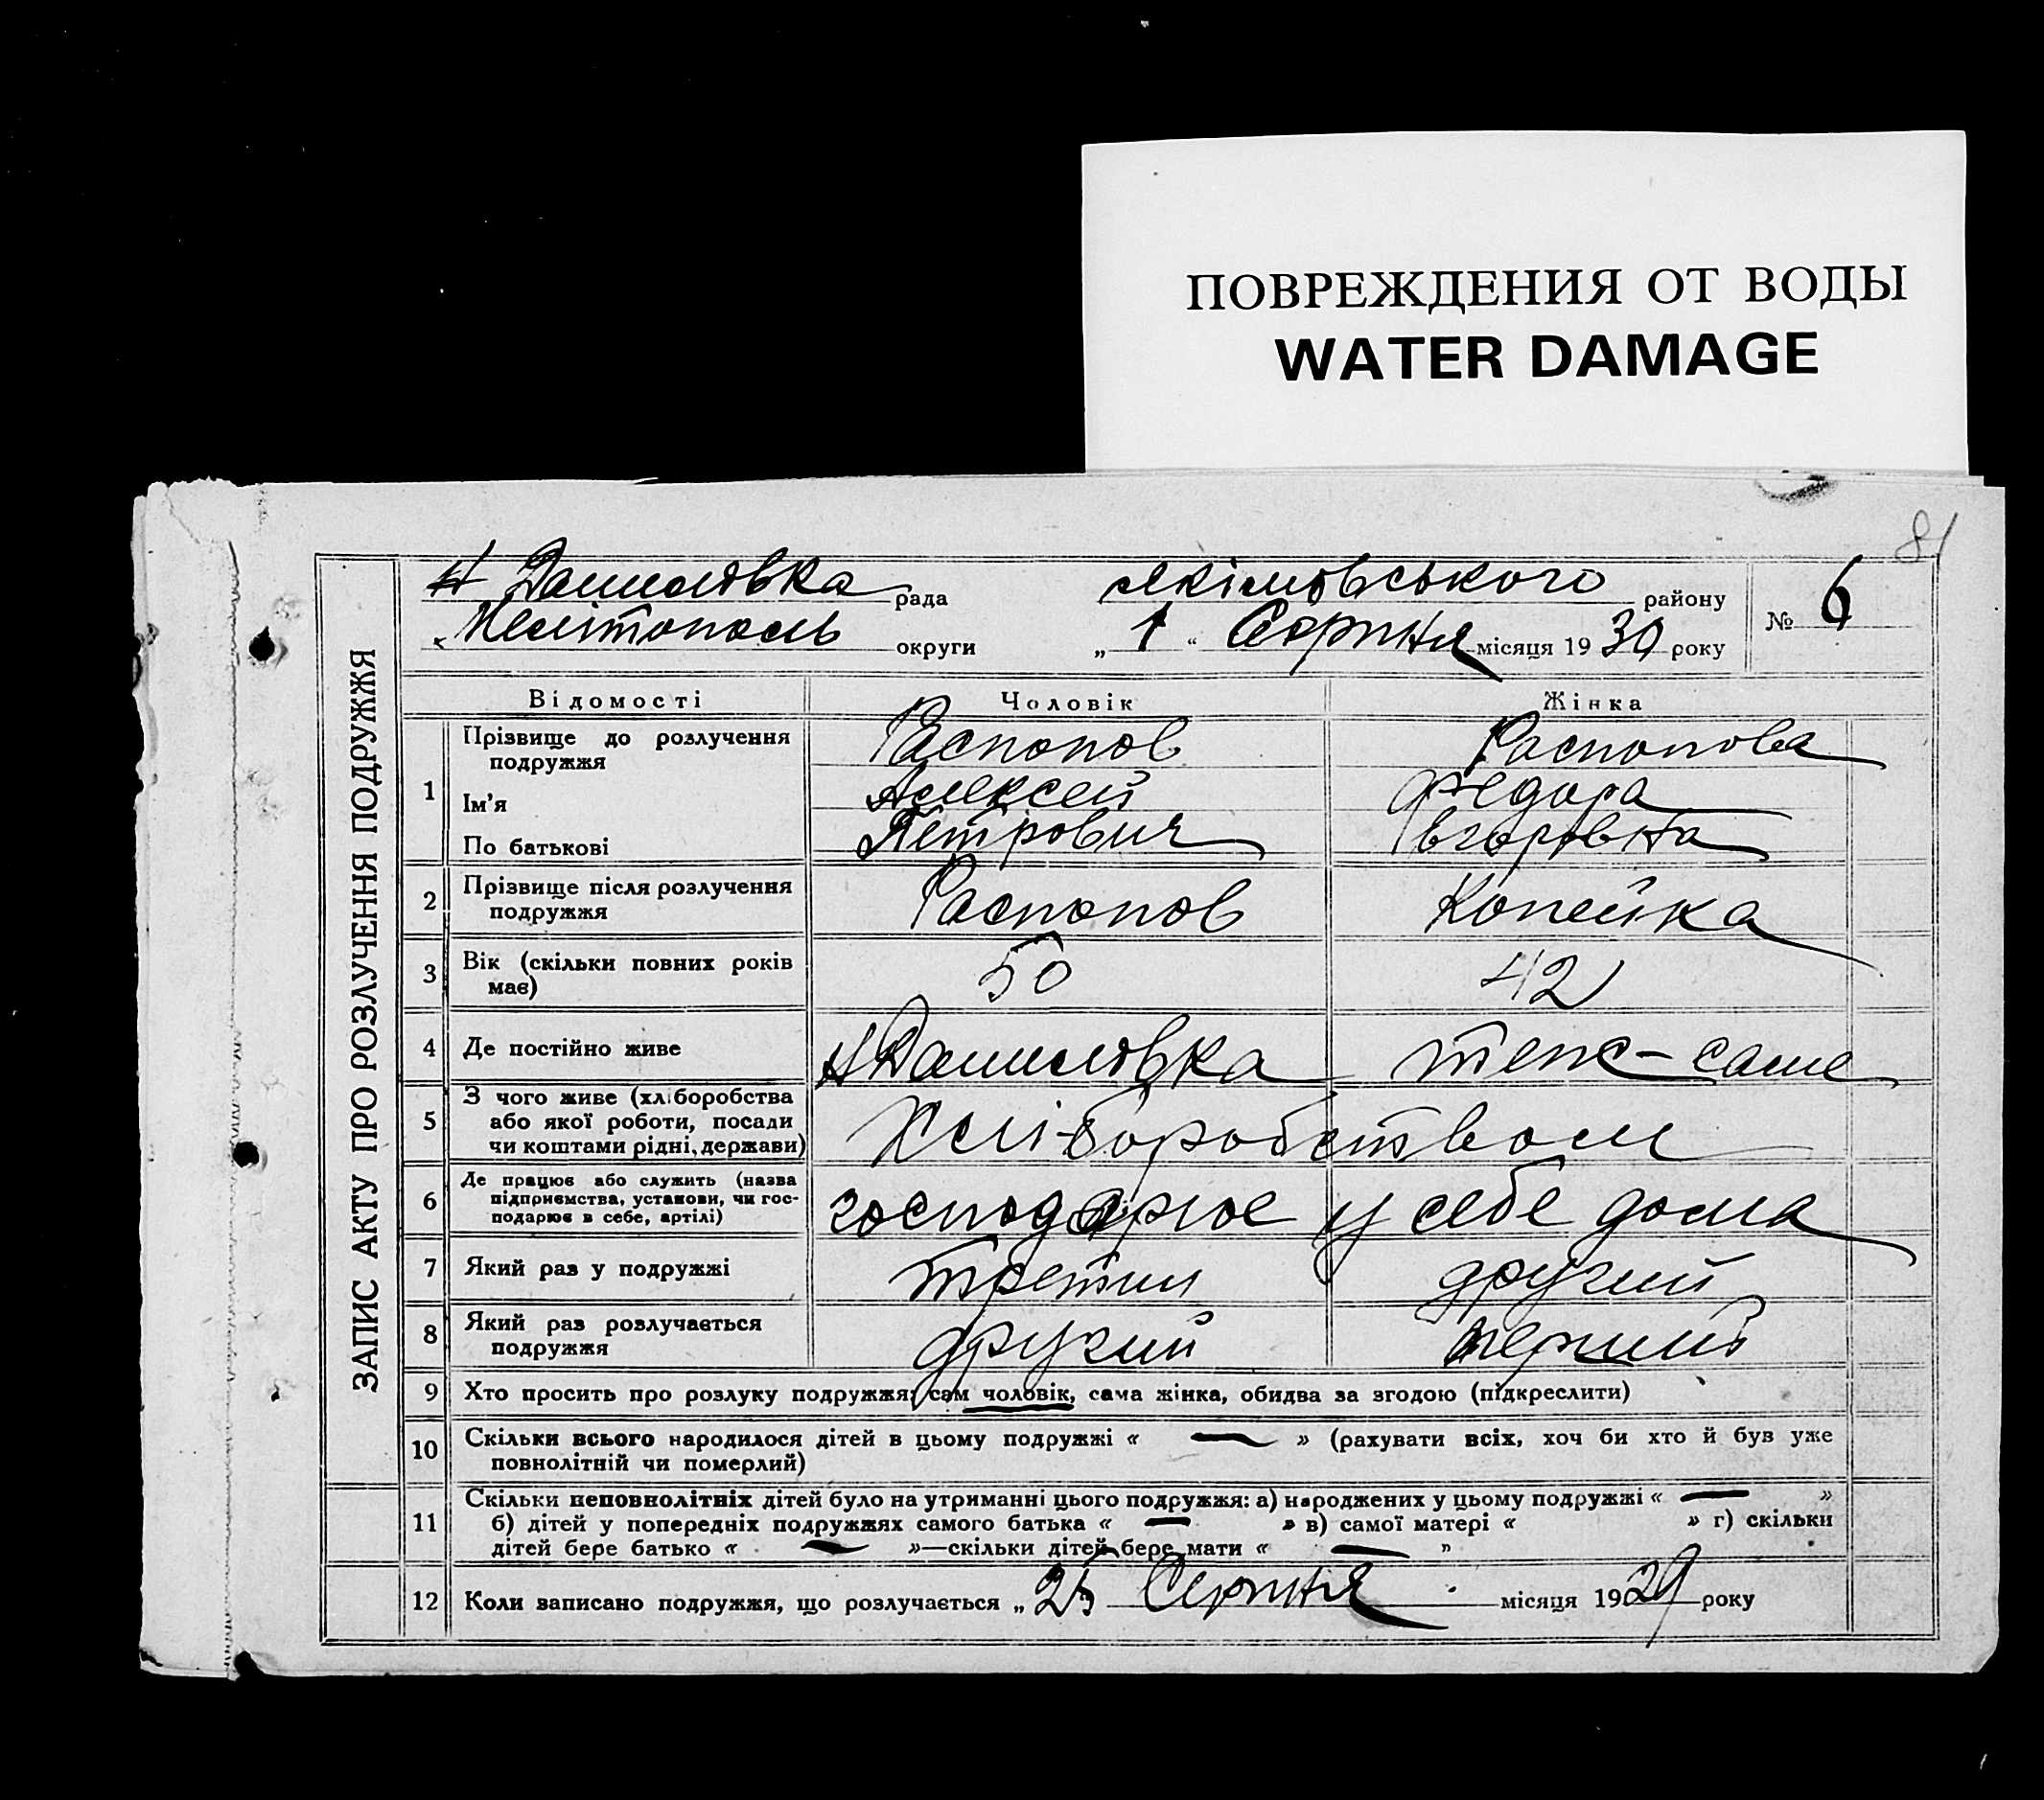 ПОВРЕЖДЕНИЯ ОТ ВОДЫ
WATER DAMAGE
81
ЗАПИС АКТУ ПРО РОЗЛУЧЕННЯ ПОДРУЖЖЯ
Н Даниловка рада Якімовського району № 6
Мелітополь округи „ 1 “ Серпня місяця 1930 року
Відомості Чоловік Жінка
1 Прізвище до розлучення подружжя Распопов Распопова
Ім'я Алексей Федора
По батькові Петрович Егоровна
2 Прізвище після розлучення подружжя Распопов Копейка
3 Вік (скільки повних років має) 50 42
4 Де постійно живе Н Даниловка теж-саме
5 З чого живе (хліборобства або якої роботи, посади чи коштами рідні, держави) Хліборобством
6 Де працює або служить (назва підприємства, установи, чи господарює в себе, артілі) господарює у себе дома
7 Який раз у подружжі третий другий
8 Який раз розлучається подружжя другий перший
9 Хто просить про розлуку подружжя: сам чоловік, сама жінка, обидва за згодою (підкреслити)
10 Скільки всього народилося дітей в цьому подружжі « — » (рахувати всіх, хоч би хто й був уже
повнолітній чи померлий)
11 Скільки неповнолітніх дітей було на утриманні цього подружжя: а) народжених у цьому подружжі « — »
б) дітей у попередніх подружжях самого батька « — » в) самої матері « » г) скільки
дітей бере батько « — »—скільки дітей бере мати « — »
12 Коли записано подружжя, що розлучається „ 25 Серпня місяця 1929 року